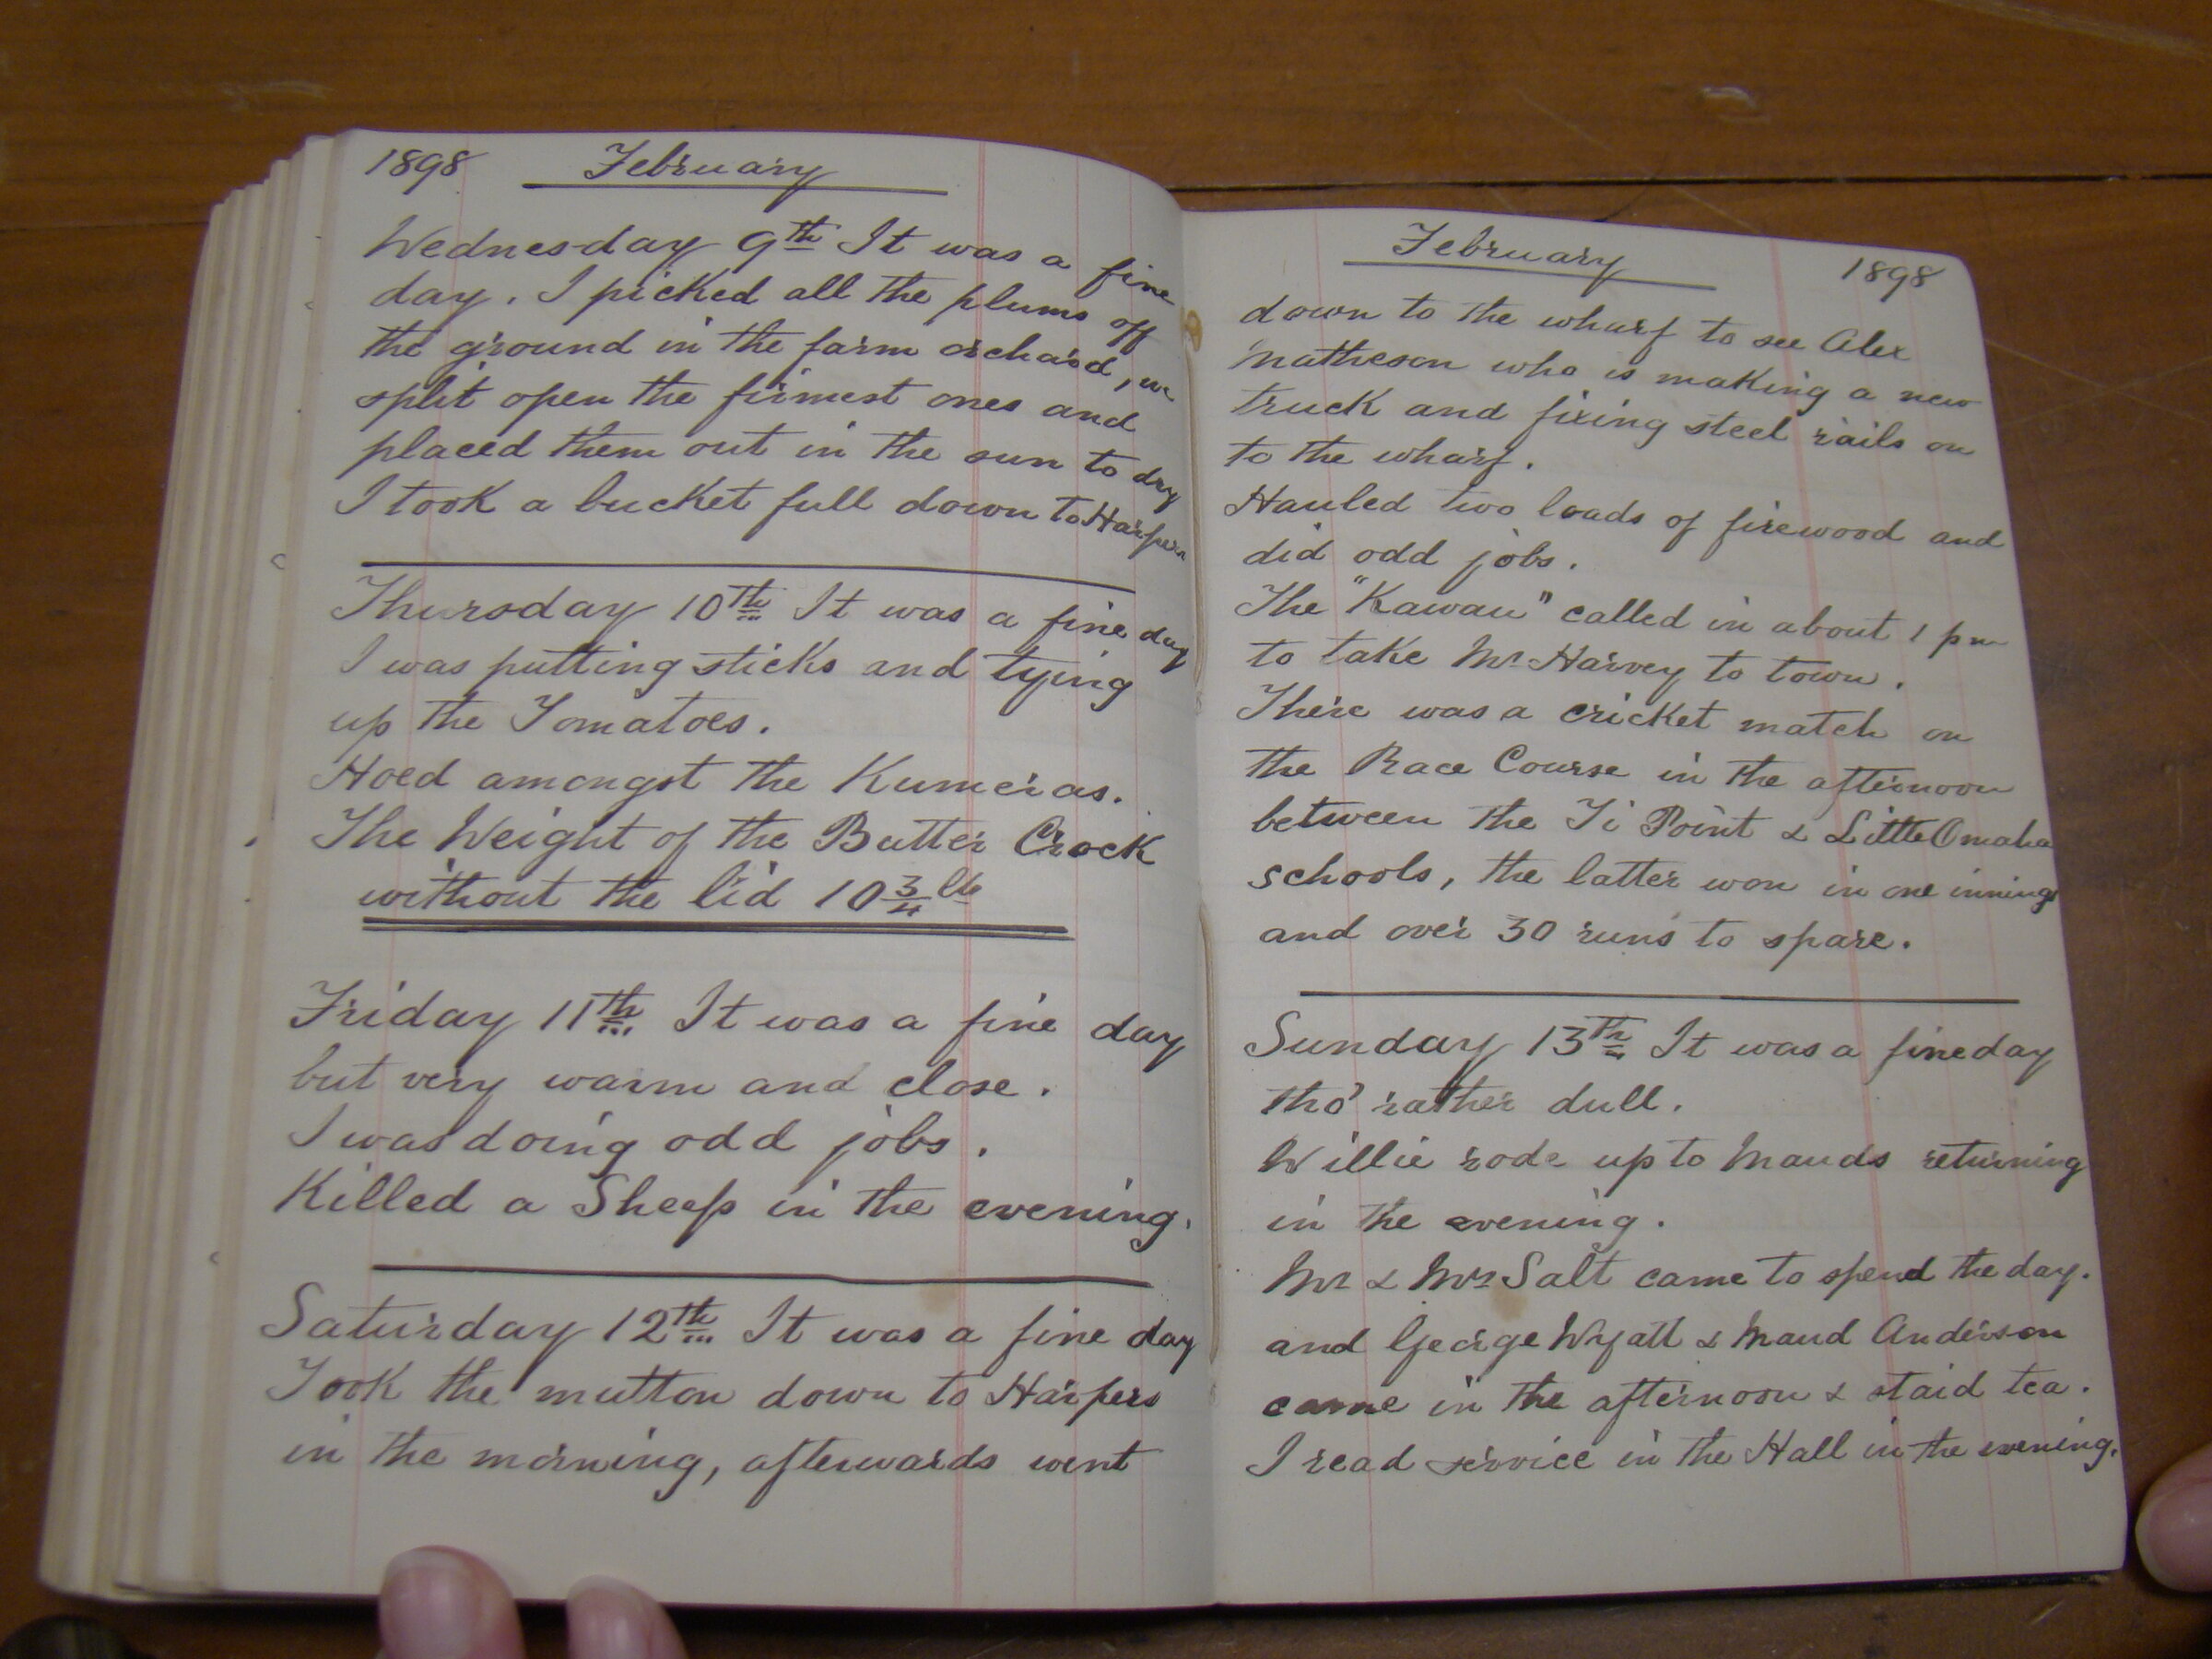 1898 February
Wednesday 9th It was a fine
day. I picked all the plums off
the ground in the farm orchard, we
split open the firmest ones and
placed them out in the sun to dry
I took a bucket full down to Harpers
Thursday 10th It was a fine day
I was putting sticks and tying
up the Tomatoes.
Hoed amongst the Kumeras.
The Weight of the Butter Crock
without the lid 10 3/4 lb
Friday 11th It was a fine day
but very warm and close.
I was doing odd jobs.
Killed a Sheep in the evening.
Saturday 12th It was a fine day
Took the mutton down to Harpers
in the morning, afterwards went
February 1898
down to the wharf to see Alex
Matheson who is making a new
truck and fixing steel rails on
to the wharf.
Hauled two loads of firewood and
did odd jobs.
The "Kawau" called in about 1 pm
to take Mr Harvey to town.
There was a cricket match on
the Race Course in the afternoon
between the Ti Point & Little Omaha
schools, the latter won in one innings
and over 30 runs to spare.
Sunday 13th It was a fine day
tho' rather dull.
Willie rode up to Mauds returning
in the evening.
Mr & Mrs Salt came to spend the day.
and George Wyatt & Maud Anderson
came in the afternoon & staid tea.
I read service in the Hall in the evening.